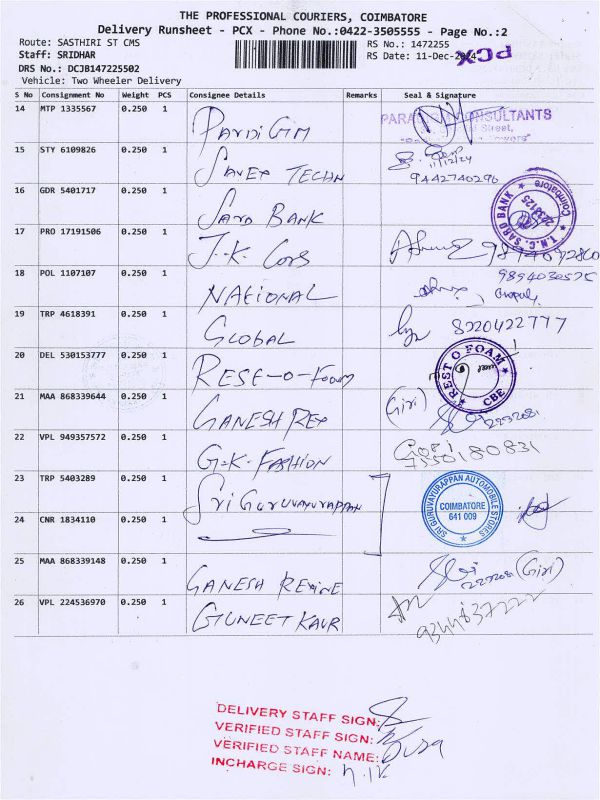 THE PROFESSIONAL COURIERS, COIMBATORE
Delivery Runsheet - PCX - Phone No.:0422-3505555 - Page No.:2
Route: SASTHIRI ST CMS RS No.: 1472255
Staff: SRIDHAR RS Date: 11-Dec-2024 PCX
DRS No.: DCJB147225502
Vehicle: Two Wheeler Delivery
S No Consignment No Weight PCS Consignee Details Remarks Seal & Signature
14 MTP 1335567 0.250 1 CONSULTANTS
Street,
15 STY 6109826 0.250 1 SAVEX TECHN 11/12/24
9442740296
16 GDR 5401717 0.250 1 SARD BANK T.N.C. SARD BANK Coimbatore
17 PRO 17191506 0.250 1 J.K. Cors
18 POL 1107107 0.250 1 NATIONAL 9894030575
19 TRP 4618391 0.250 1 GLOBAL 8220422777
20 DEL 530153777 0.250 1 RESE-O-Foam REST O FOAM CBE
21 MAA 868339644 0.250 1 GANESH REX (Giri)
22 VPL 949357572 0.250 1 G.K. FASHION Gopi
7550180831
23 TRP 5403289 0.250 1 Sri Guruvayurappan SRI GURUVAYURAPPAN AUTOMOBILE STORES
COIMBATORE
641 009
24 CNR 1834110 0.250 1
25 MAA 868339148 0.250 1 GANESH REXINE (Giri)
26 VPL 224536970 0.250 1 GUNEET KAUR 9344837222
DELIVERY STAFF SIGN:
VERIFIED STAFF SIGN:
VERIFIED STAFF NAME:
INCHARGE SIGN: